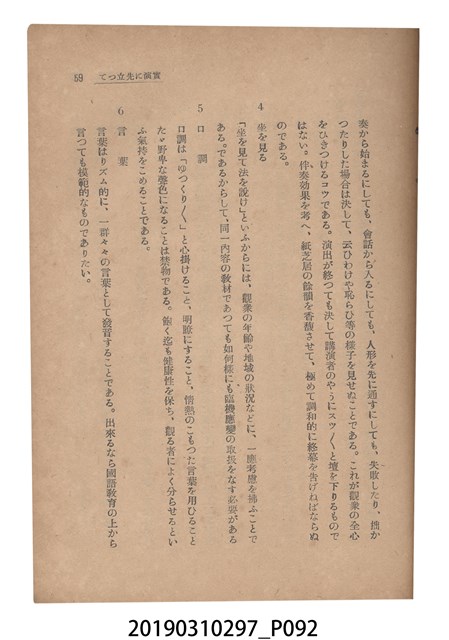 59　實演に先立つて
奏から始まるにしても、會話から入るにしても、人形を先に通すにしても、失敗したり、拙か
つたりした場合は決して、云ひわけや恥らひ等の樣子を見せぬことである。これが觀衆の全心
をひきつけるコツである。演出が終つても決して講演者のやうにスツ〱と壇を下りるもので
はない。伴奏効果を考へ、紙芝居の餘韻を香馥させて、極めて調和的に終幕を告げねばならぬ
のである。
4　坐を見る
「坐を見て法を說け」といふからには、觀衆の年齡や地域の狀況などに、一應考慮を拂ふことで
ある。であるからして、同一內容の敎材であつても如何樣にも臨機應變の取扱をなす必要がある
5　口調
口調は「ゆつくり〱」と心掛けること、明瞭にすること、情熱のこもつた言葉を用ひること
たゞ野卑な聲色になることは禁物である。飽く迄も健康性を保ち、觀る者によく分らせるとい
ふ氣持をこめることである。
6　言葉
言葉はリズム的に、一群々々の言葉として發音することである。出來るなら國語敎育の上から
言つても模範的なものでありたい。
20190310297_P092